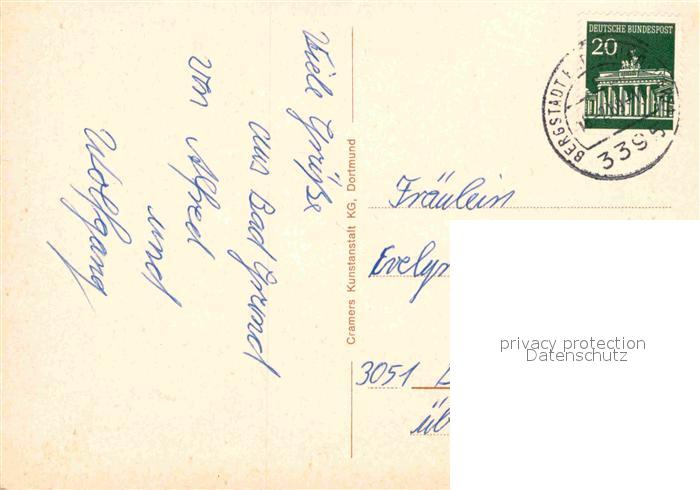 Viele Grüße
aus Bad Grund
von Alfred
und
Wolfgang
Cramers Kunstanstalt KG, Dortmund
DEUTSCHE BUNDESPOST
20
BERGSTADT
3395
Fräulein
Evelyn
3051
üb
privacy protection
Datenschutz